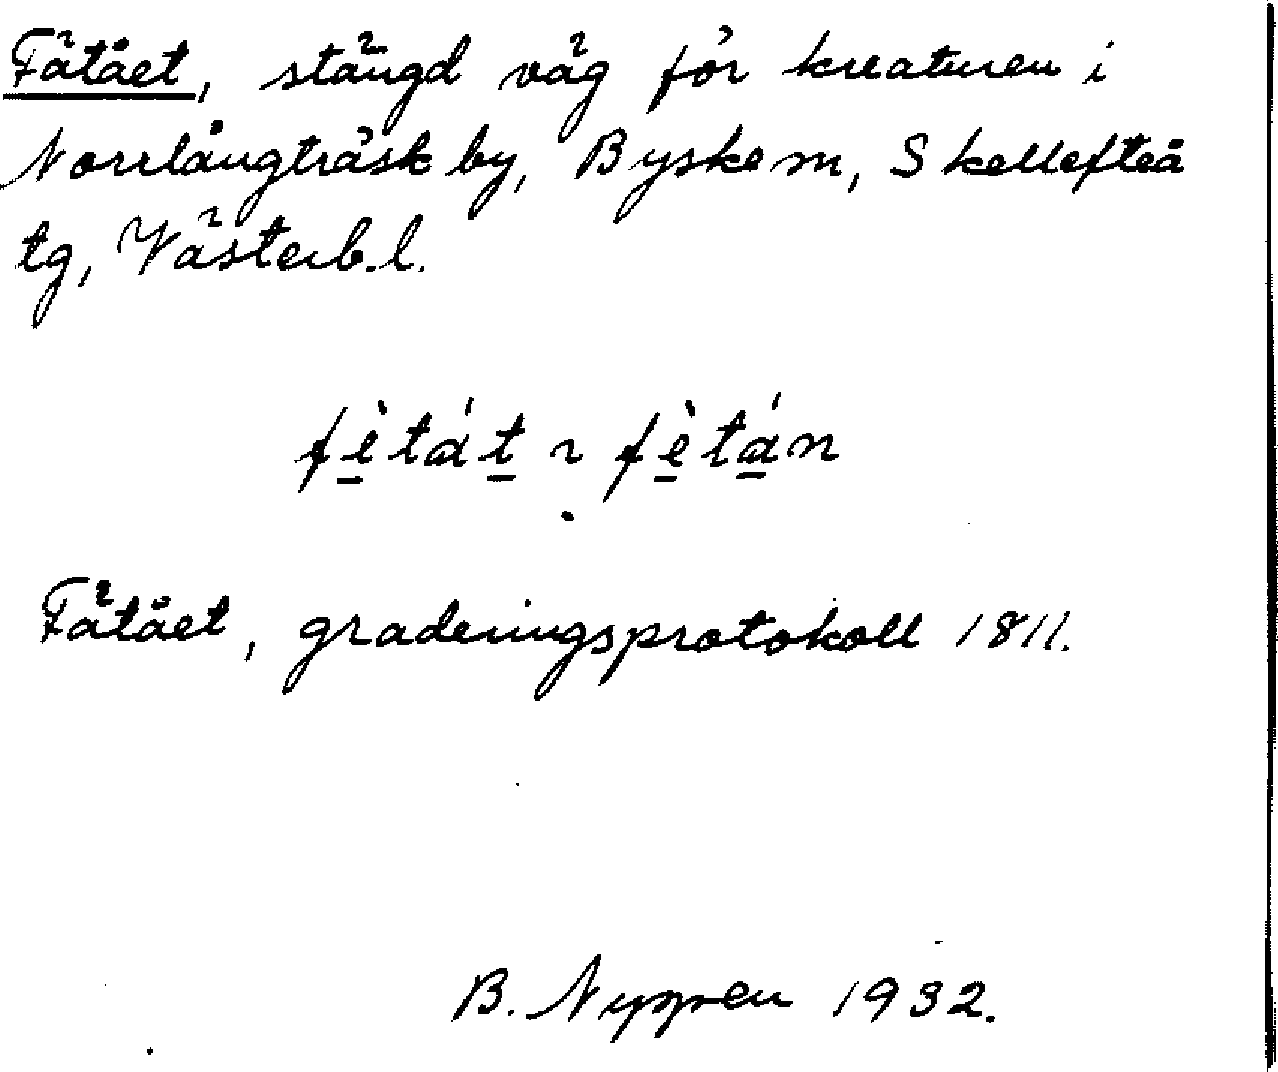 Fätået, stängd väg för kreaturen i
Norrlångträsk by, Byske sn, Skellefteå
tg, Västerb. l.
fètát ~ fètán
Fätået, graderingsprotokoll 1811.
B. Nyppen 1932.